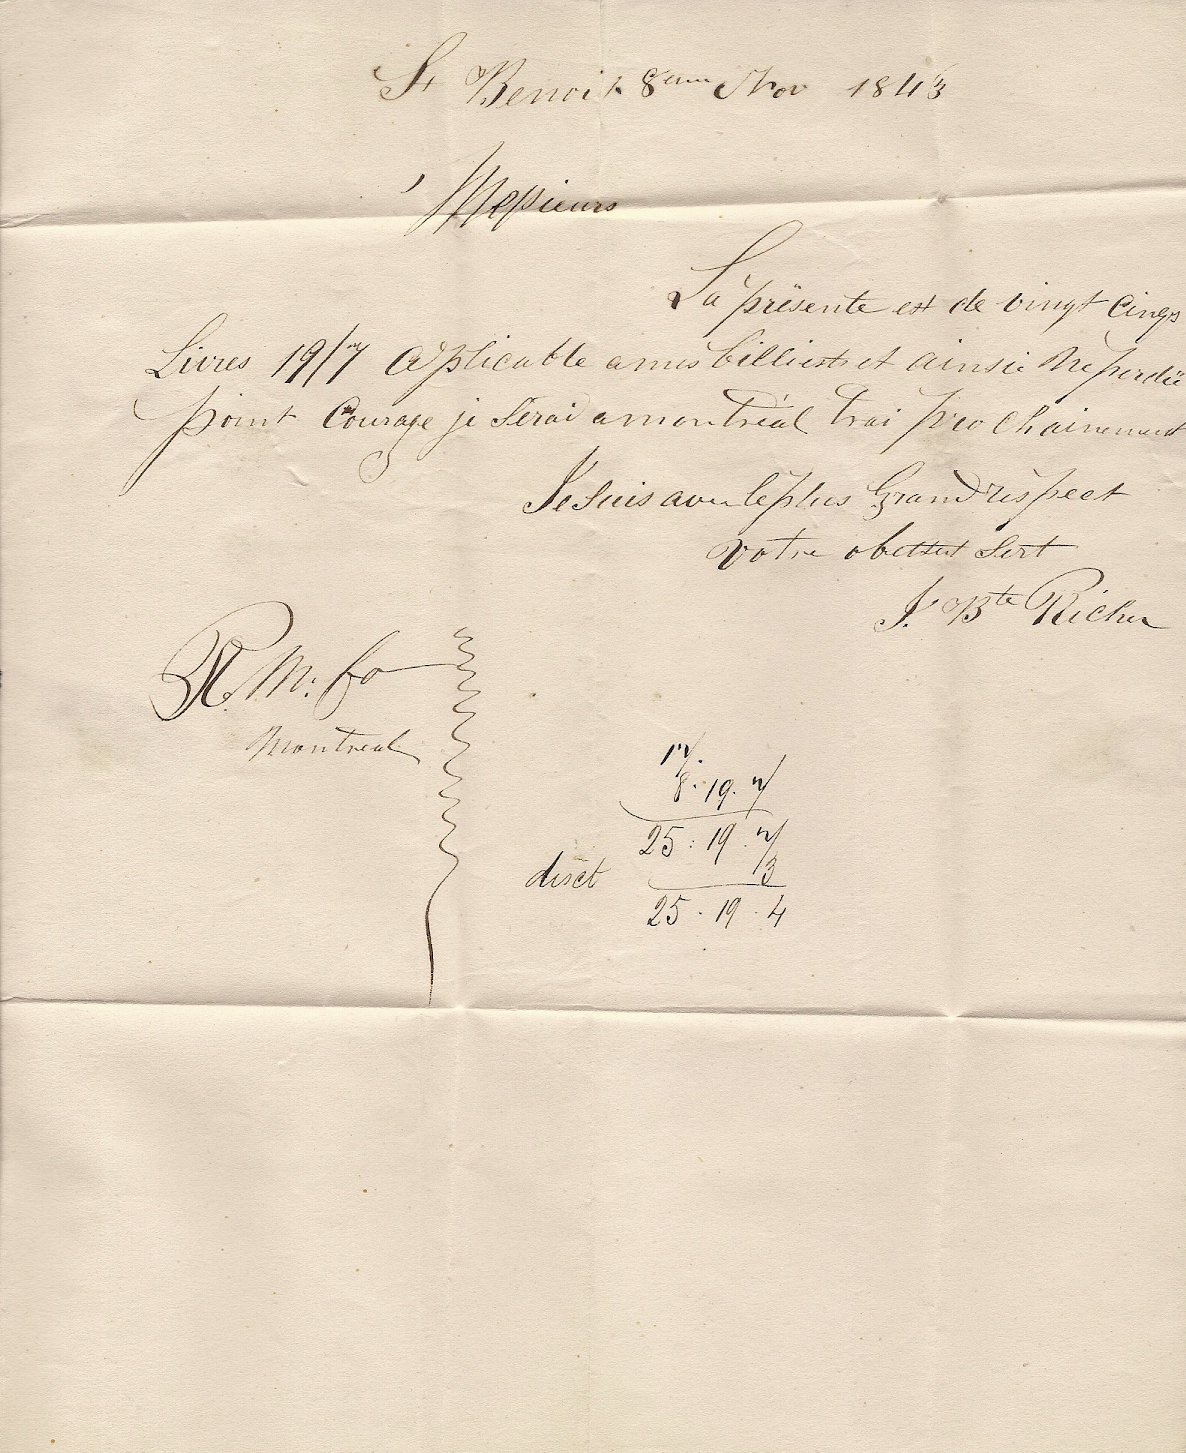 St Benoit 8eme Nov 1843
Messieurs
La présente est de vingt Cinqs
Livres 19/7 applicable a mes billiests et ainsie ne perdée
point Courage je serai a montréal trai prochainement
Je suis avec le plus Grand respect
votre obt Sert
J. Bte Richer
M: Co
Montreal
17.
8.19.7
25:19.7
disct 3
25.19.4